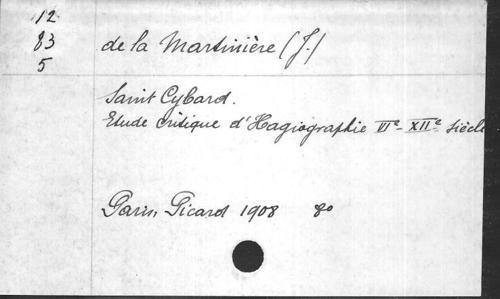 12
83
5
de la Martinière (J.)
Saint Cybard.
Etude critique d'Hagiographie VIe - XIIe siècle
Paris, Picard 1908 8o